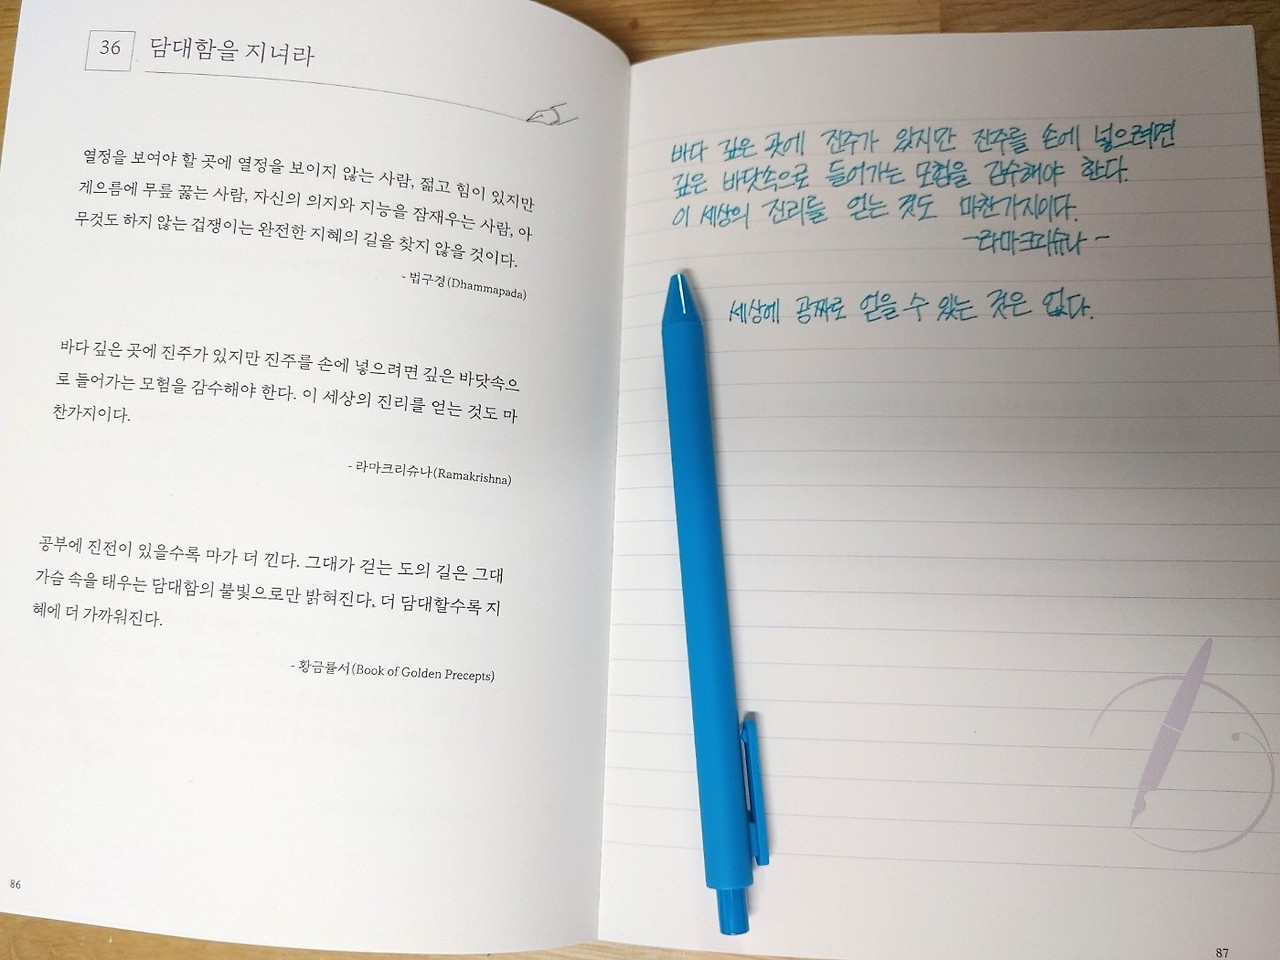 36 담대함을 지녀라
열정을 보여야 할 곳에 열정을 보이지 않는 사람, 젊고 힘이 있지만
게으름에 무릎 꿇는 사람, 자신의 의지와 지능을 잠재우는 사람, 아
무것도 하지 않는 겁쟁이는 완전한 지혜의 길을 찾지 않을 것이다.
- 법구경(Dhammapada)
바다 깊은 곳에 진주가 있지만 진주를 손에 넣으려면 깊은 바닷속으
로 들어가는 모험을 감수해야 한다. 이 세상의 진리를 얻는 것도 마
찬가지이다.
- 라마크리슈나(Ramakrishna)
공부에 진전이 있을수록 마가 더 낀다. 그대가 걷는 도의 길은 그대
가슴 속을 태우는 담대함의 불빛으로만 밝혀진다. 더 담대할수록 지
혜에 더 가까워진다.
- 황금률서(Book of Golden Precepts)
86
바다 깊은 곳에 진주가 있지만 진주를 손에 넣으려면
깊은 바닷속으로 들어가는 모험을 감수해야 한다.
이 세상의 진리를 얻는 것도 마찬가지이다.
-라마크리슈나-
세상에 공짜로 얻을 수 있는 것은 없다.
87